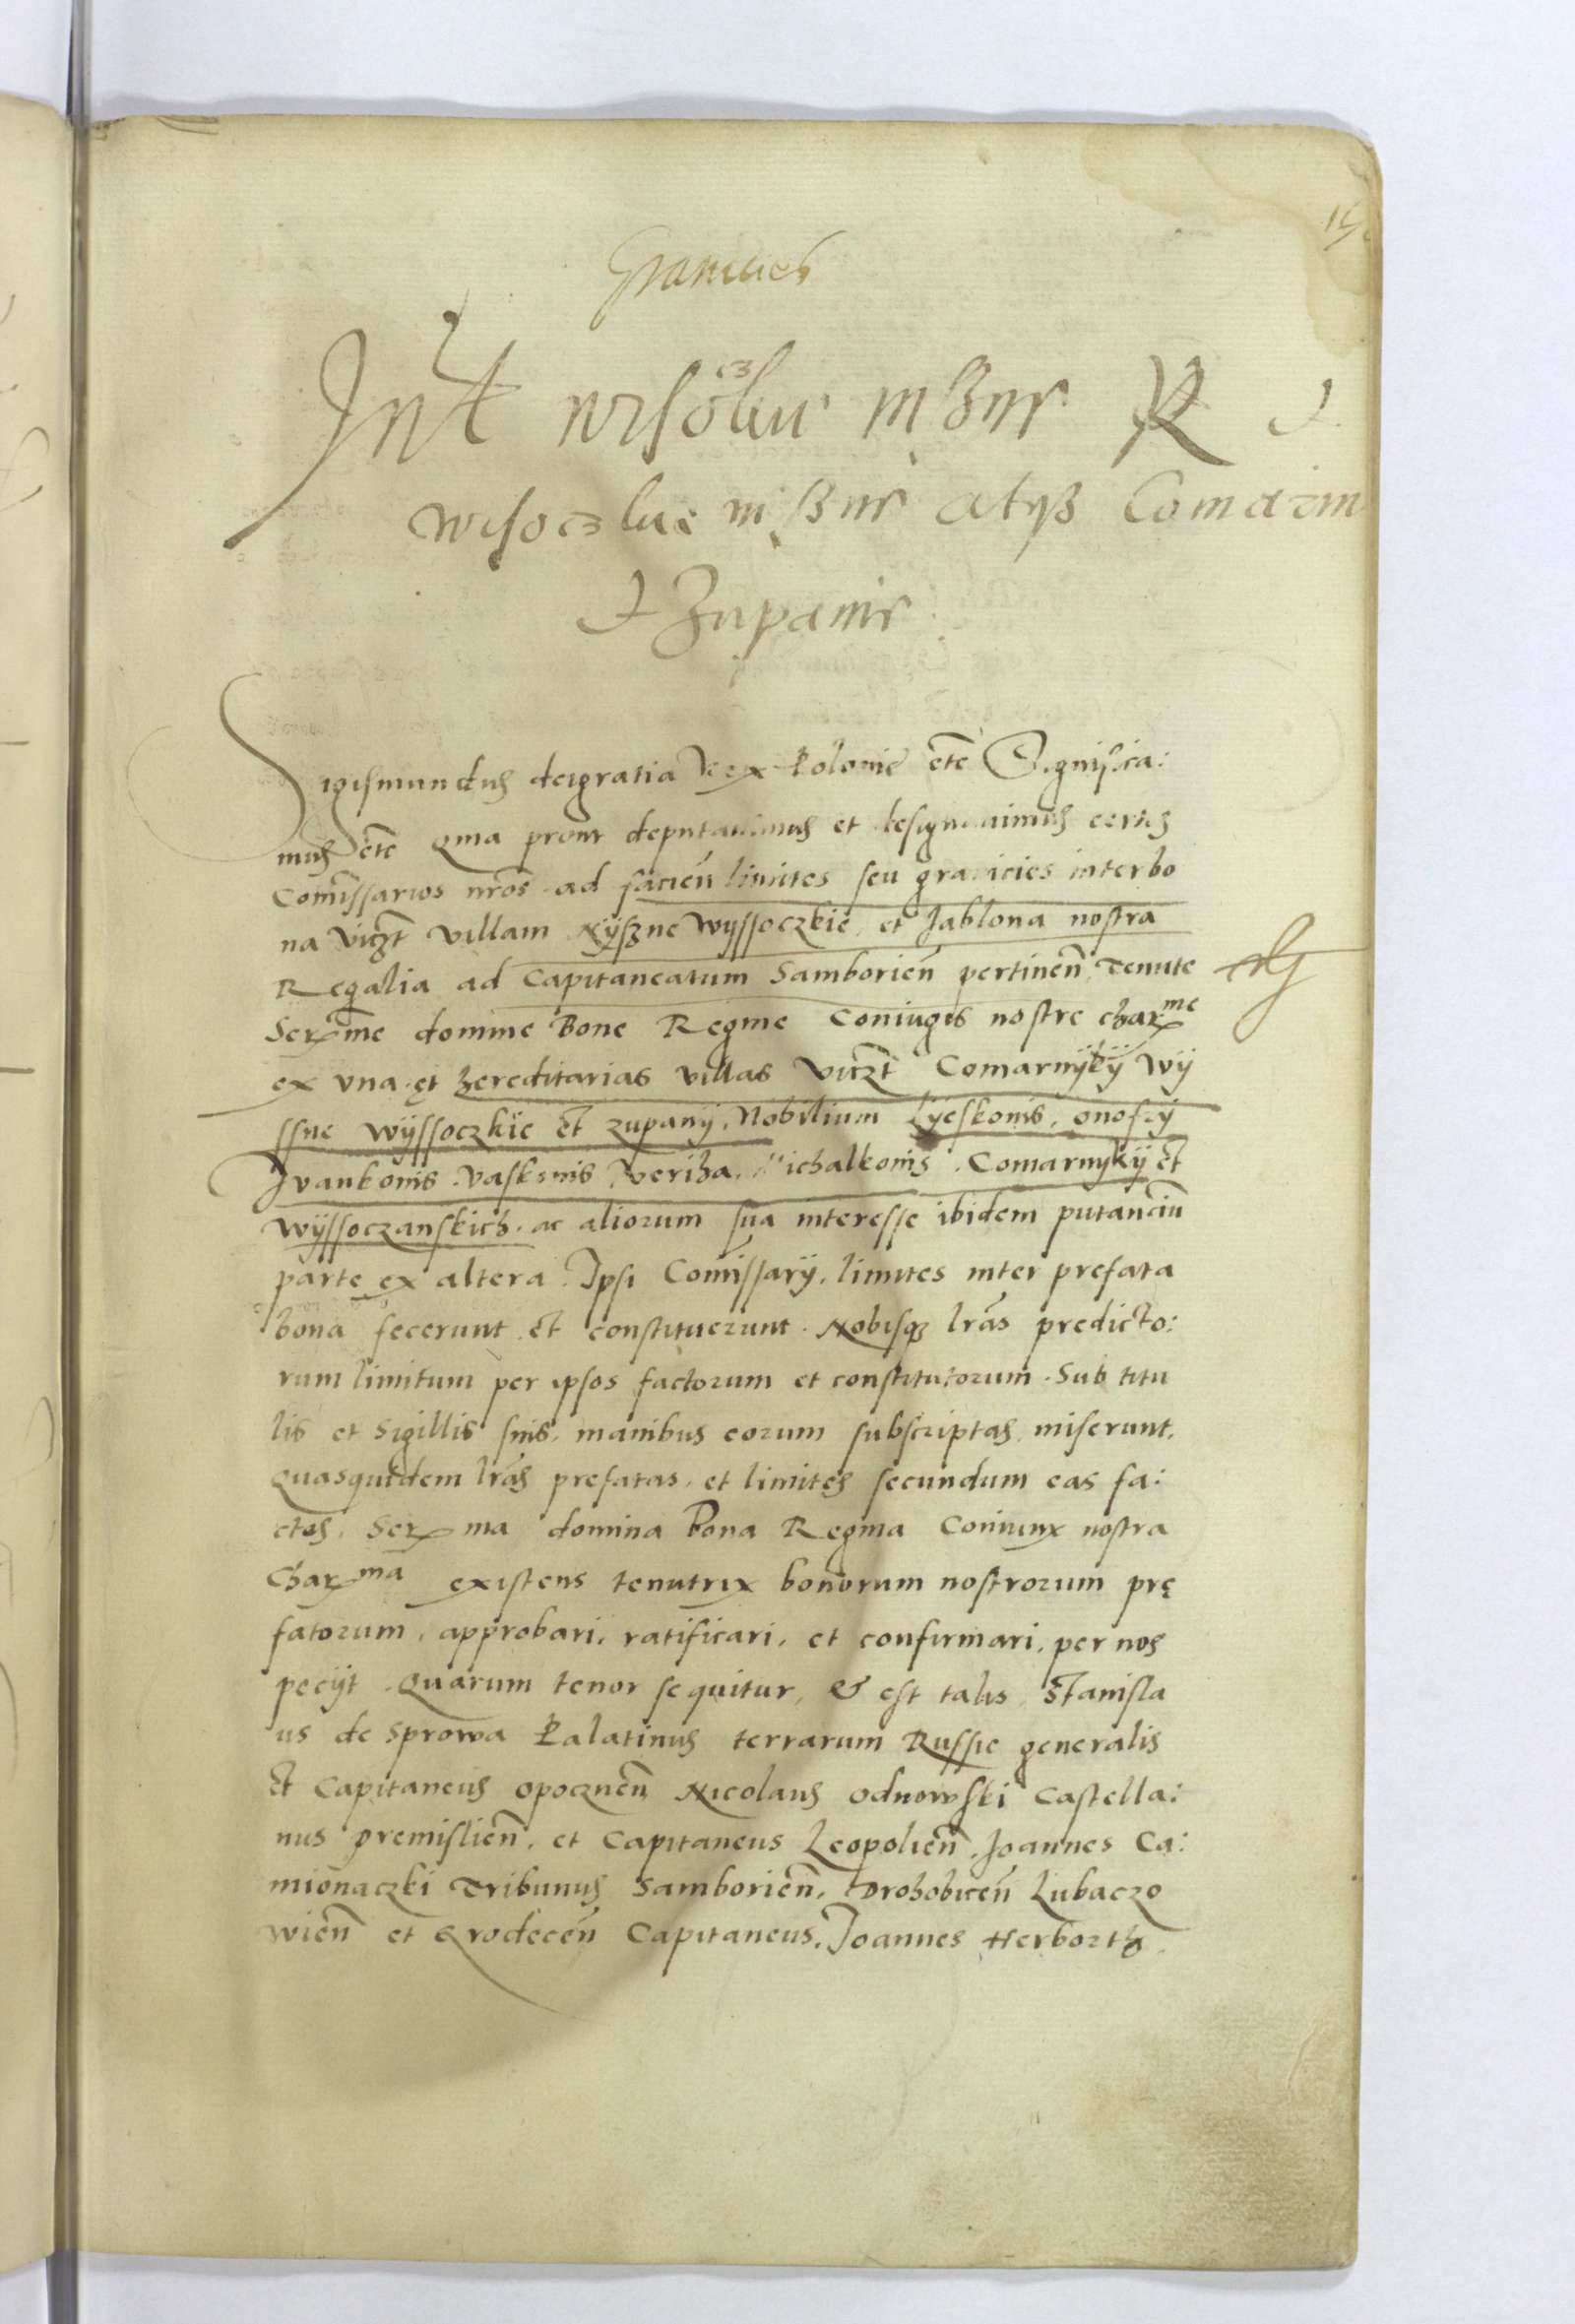 Granicies
Int wisoczkie niżne R et
wisoczkie niszne atqz Comarni
et Zupanie
Sigismundus dei gratia Rex Polonie etc Significa:
mus etc quia prout deputauimus et designauimus certos
Comissarios nros ad facien limites seu granicies inter bo
na viczt villam Nyszne Wyssoczkie et Jablona nostra
Regalia ad Capitaneatum Samborien pertinen Tenute
Serme domine Bone Regine Coniugis nostre charme
ex vna et hereditarias villas viczt Comarnyky Wy
ssne Wyssoczkie et zupany, Nobilium Lyeskonis, onofry
Jvankonis Vaskonis Iveriha, Michalkonis Comarnykij et
Wyssoczanskich ac aliorum sua interesse ibidem putanciu
parte ex altera Ipsi Comissarij, limites inter prefata
bona fecerunt et constituerunt Nobisqz lras predicto:
rum limitum per ipsos factorum et constitutorum Sub titu
lis et Sigillis suis, manibus eorum subscriptas miserunt.
Quasquidem lras prefatas, et limites secundum eas fa:
ctos, Serma domina Bona Regina Coniunx nostra
Charma existens tenutrix bonorum nostrorum prę
fatorum, approbari, ratificari, et confirmari, per nos
pecijt Quarum tenor sequitur, & est talis Stanisla
us de Sprowa Palatinus terrarum Russie generalis
Et Capitaneus opocznen Nicolaus Odnowski Castella:
nus premislien, et Capitaneus Leopolien, Joannes Ca:
mionaczki Tribunus Samborien, Drohobicen Lubaczo
wien et Grodecen Capitaneus, Joannes Herborth